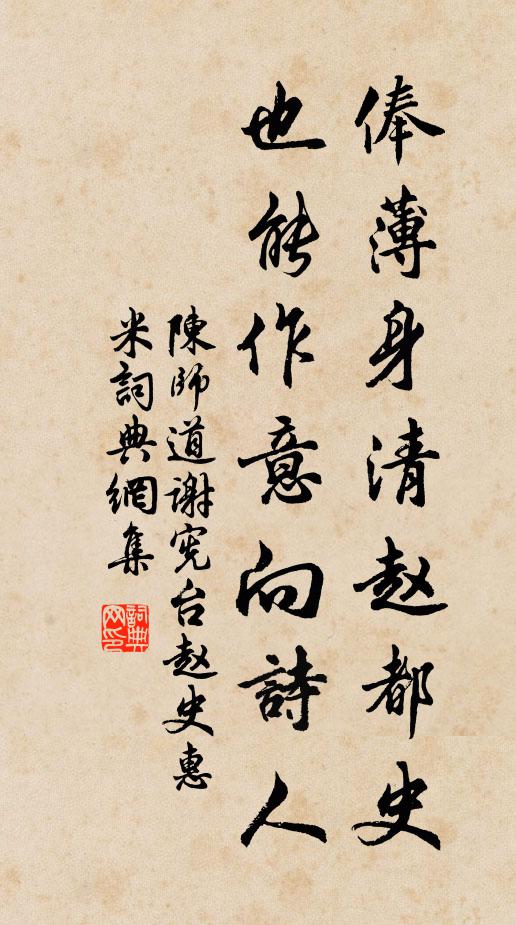 俸薄身清赵都史
也能作意向詩人
陳師道谢宪台赵史惠
米詞典網集
詞典
网印